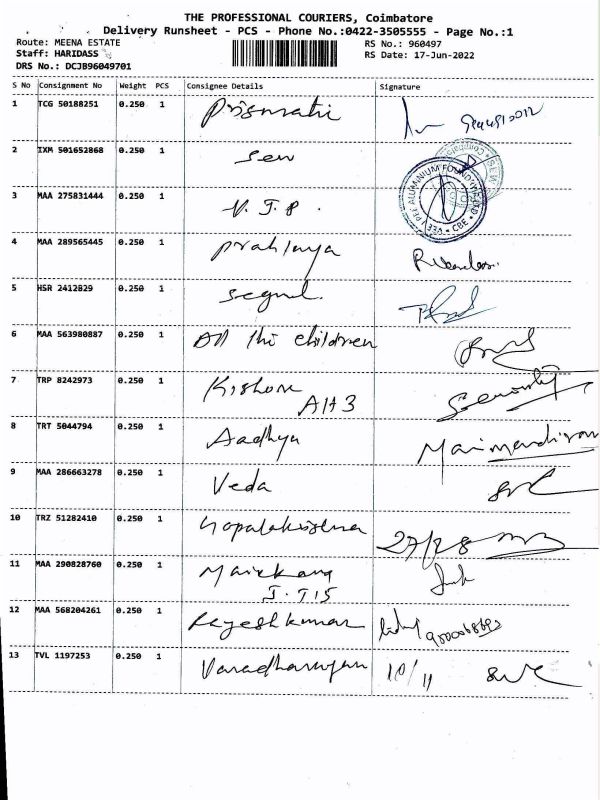 THE PROFESSIONAL COURIERS, Coimbatore
Delivery Runsheet - PCS - Phone No.:0422-3505555 - Page No.:1
Route: MEENA ESTATE RS No.: 960497
Staff: HARIDASS RS Date: 17-Jun-2022
DRS No.: DCJB96049701
S No Consignment No Weight PCS Consignee Details Signature
1 TCG 50188251 0.250 1
2 IXM 501652868 0.250 1 Sew
3 MAA 275831444 0.250 1 V.J.P.
4 MAA 289565445 0.250 1
5 HSR 2412829 0.250 1
6 MAA 563980887 0.250 1 All the children
7 TRP 8242973 0.250 1 Kishore
AH3
8 TRT 5044794 0.250 1 Aadhya
9 MAA 286663278 0.250 1 Veda
10 TRZ 51282410 0.250 1 Gopalakrishna 27/28
11 MAA 290828760 0.250 1
12 MAA 568204261 0.250 1 Rajeshkumar
13 TVL 1197253 0.250 1 Varadharajan 10/11